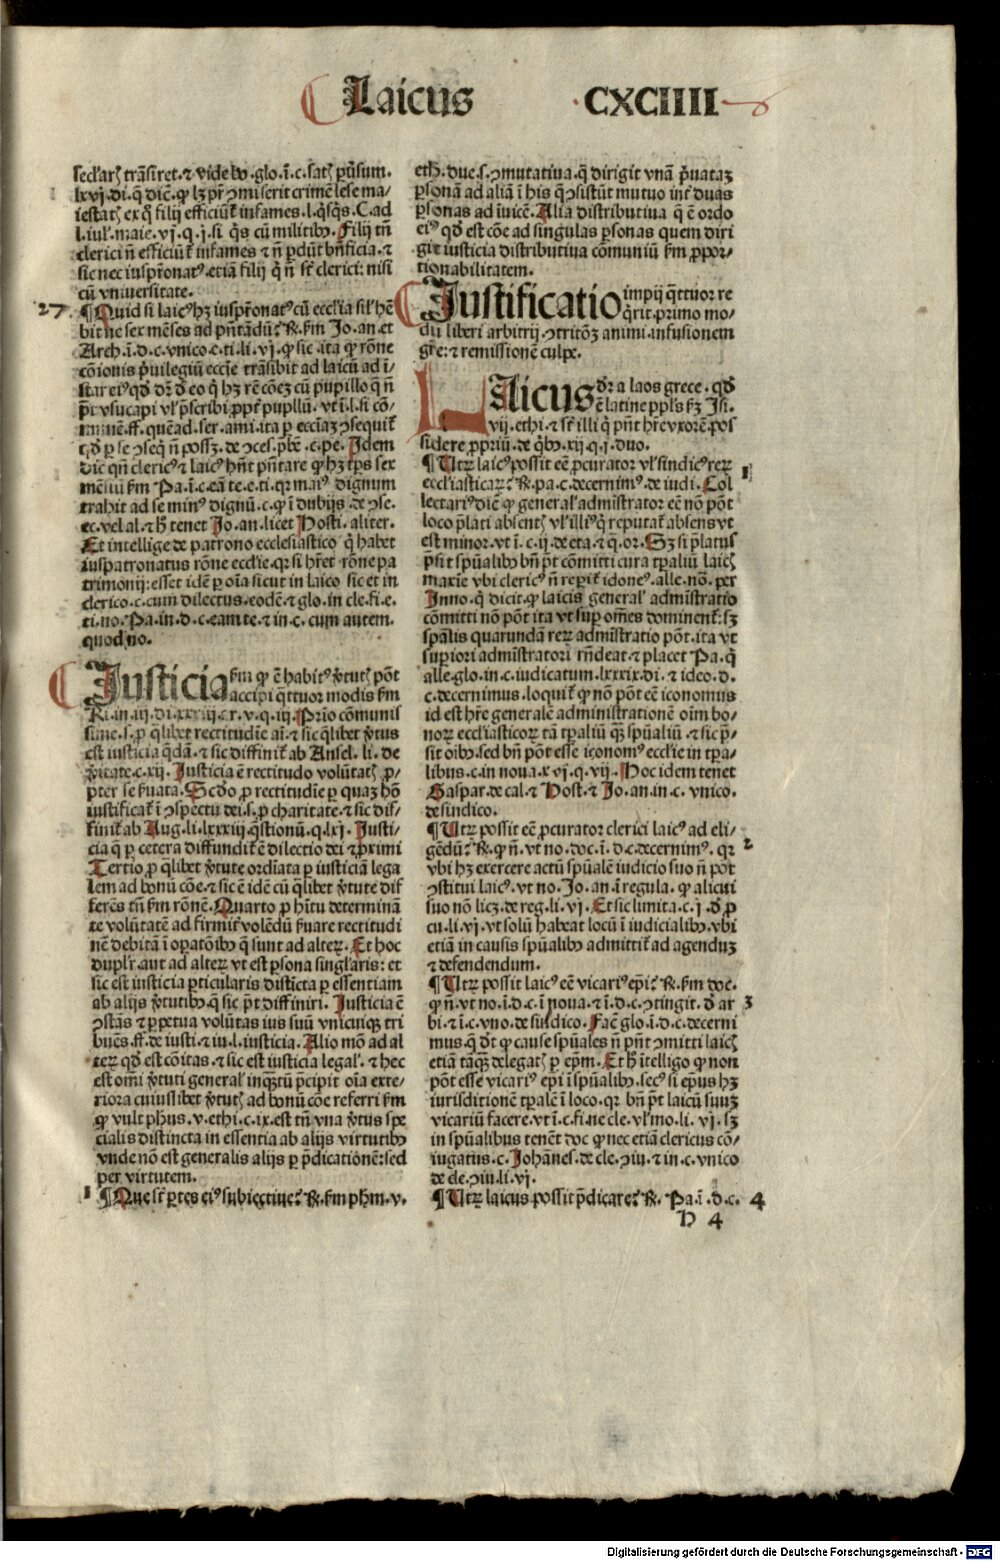 Laicus CXCIIII
seclarꝭ trãsiret.⁊ vide bo.glo.ĩ.c.satꝭ pũsum.
lxvj.di.q̃ dic̃.ꝙ lꝫ pr̃ ꝯmiserit crimẽ lese ma/
iestatꝭ ex q̃ filij efficiũt̃ infames.l.q̃sq̃s.C.ad
l.iul̃.maie.vj.q.j.si q̃s cũ militibꝰ.Filij tñ
clerici ñ efficiũt̃ infames ⁊ ñ ꝑdũt bñficia.⁊
sic nec iuspr̃onatꝰ.etiã filij q̃ ñ sũt clerici: nisi
cũ vniuersitate.
27. ¶ Quid si laicꝰ hꝫ iuspr̃onatꝰ cũ eccl̃ia sil̃ hẽ
bit ne sex mẽses ad pñtãdũ: R̃.ẜm Jo.an.et
Arch.ĩ.d.c.vnico.e.ti.li.vj.ꝙ sic.ita ꝙ rõne
cõionis p̃uilegiũ eccl̃ie trãsibit ad laicũ ad ĩ/
star eiꝰ qd̃ dr̃ d̃ eo q̃ hꝫ rẽ cõeꝫ cũ pupillo q̃ ñ
põt vsucapi vl̃ p̃scribi ꝓpt̃ pupillũ.vt ĩ.l.si cõ/
munẽ.ff.quẽad.ser.ami.ita ꝑ eccl̃iaꝫ ꝯsequit̃
qd̃ ꝑ se ꝯseq̃ ñ possꝫ.de ꝯces.p̃be.c.pe.Idem
dic̃ qñ clericꝰ ⁊ laicꝰ hñt pñtare ꝙ hꝫ tp̃s sex
mẽsiũ ẜm Pa.ĩ.c.eã te.e.ti.qr maiꝰ dignum
trahit ad se minꝰ dignũ.c.ꝙ ĩ dubijs.de ꝯse.
ec.vel al.⁊ h̃ tenet Jo.an.licet Hosti.aliter.
Et intellige de patrono ecclesiastico q̃ habet
iuspatronatus rõne eccl̃ie.qr si hr̃et rõne pa
trimonij: esset idẽ ꝑ oĩa sicut in laico sic et in
clerico.c.cum dilectus.eodẽ.⁊ glo.in cle.fi.e.
ti.no.Pa.in.d.c.eam te.⁊ in.c.cum autem.
quod no.
Justicia ẜm ꝙ ẽ habitꝰ v̓tutꝭ põt
accipi q̃ttuor modis ẜm
Ri.in.iij.di.xxxiij.ar.v.q.iij.Prĩo cõmunis
sime.s.ꝓ q̃libet rectitudĩe aĩ.⁊ sic q̃libet v̓tus
est iusticia q̃dã.⁊ sic diffinit̃ ab Ansel.li.de
v̓itate.c.xij.Justicia ẽ rectitudo volũtatꝭ ꝓ/
pter se ẜuata.Scd̃o ꝓ rectitudĩe ꝑ quaꝫ hõ
iustificat̃ ĩ ꝯspectu dei.s.ꝓ charitate.⁊ sic dif/
finit̃ ab Aug.li.lxxxiij.q̃stionũ.q.lxj.Justi/
cia q̃ ꝑ cetera diffundit̃ ẽ dilectio dei ⁊ ꝓximi
Tertio ꝓ q̃libet v̓tute ordĩata ꝑ iusticiã lega
lem ad bonũ cõe.⁊ sic ẽ idẽ cũ q̃libet v̓tute dif
ferẽs tñ ẜm rõnẽ.Quarto ꝓ hĩtu determinã
te volũtatẽ ad firmit̃ volẽdũ ẜuare rectitudi
nẽ debitã ĩ oꝑatõibꝰ q̃ sunt ad alteꝝ.Et hoc
duplr̃.aut ad alteꝝ vt est ꝑsona singl̃aris: et
sic est iusticia ꝑticularis distĩcta ꝑ essentiam
ab alijs v̓tutibꝰ.q̃ sic põt diffiniri.Justicia ẽ
ꝯstãs ⁊ ꝑpetua volũtas ius suũ vnicuiqꝫ tri
buẽs.ff.de iusti.⁊ iu.l.iusticia.Alio mõ ad al
teꝝ qd̃ est cõitas.⁊ sic est iusticia legal̃.⁊ hec
est omĩ v̓tuti general̃ inqꝫtũ p̃cipit oĩa exte/
riora cuiuslibet v̓tutꝭ ad bonũ cõe referri ẜm
ꝙ vult ph̃us.v.ethi.c.ix.est tñ vna v̓tus spe
cialis distincta in essentia ab alijs virtutibꝰ
vnde nõ est generalis alijs ꝑ p̃dicationẽ: sed
per virtutem.
1 ¶ Que sũt ꝑtes eiꝰ subiectiue: R̃.ẜm ph̃m.v.
eth.due.s.ꝯmutatiua.q̃ dirigit vnã p̃uataꝫ
ꝑsonã ad aliã ĩ his q̃ ꝯsistũt mutuo int̃ duas
ꝑsonas ad ĩuicẽ.Alia distributiua q̃ ẽ ordo
eiꝰ qd̃ est cõe ad singulas ꝑsonas quem diri
git iusticia distributiua cõmuniũ ẜm ꝓpor/
tionabilitatem.
Justificatio impij q̃ttuor re
q̃rit.primo mo/
dũ liberi arbitrij.ꝯtritõꝫ animi.infusionem
gr̃e: ⁊ remissionẽ culpe.
LAicus dr̃ a laos grece.qd̃
ẽ latine ppl̃s ẜꝫ Jsi.
vij.ethi.⁊ sũt illi q̃ pñt hr̃e vxorẽ.pos
sidere ꝓpriũ.de q̃bꝰ.xij.q.j.duo.
¶ Utꝝ laicꝰ possit eẽ ꝓcurator vl̃ sindicꝰ reꝝ 1
eccl̃iasticaꝝ: R̃.pa.c.decernimꝰ.de iudi.Col
lectariꝰ dic̃ ꝙ general̃ admĩstrator eẽ nõ põt
loco p̃lati absentꝭ vl̃ illiꝰ q̃ reputat̃ absens vt
est minor.vt ĩ.c.ij.de eta.⁊ q̃.or.Sꝫ si p̃latus
p̃sit sp̃ualibꝰ bñ põt cõmitti cura tp̃aliũ laicꝭ
maxĩe vbi clericꝰ ñ reꝑit̃ idoneꝰ.alle.nõ.per
Inno.q̃ dicit.ꝙ laicis general̃ admĩstratio
cõmitti nõ põt ita vt suꝑ omẽs dominent̃: sꝫ
sp̃alis quarundã reꝝ admĩstratio põt.ita vt
suꝑiori admĩstratori rñdeat.⁊ placet Pa.q̃
alle.glo.in.c.iudicatum.lxxxix.di.⁊ ideo.d.
c.decernimus.loquit̃ ꝙ nõ põt eẽ iconomus
id est hr̃e generalẽ administrationẽ oĩm bo/
noꝝ eccl̃iasticoꝝ tã tp̃aliũ qꝫ sp̃ualiũ.⁊ sic p̃/
sit oĩbꝰ.sed bñ põt esse iconomꝰ eccl̃ie in tp̃a/
libus.c.in noua.xvj.q.vij.Hoc idem tenet
Gaspar.de cal.⁊ Host.⁊ Jo.an.in.c.vnico.
de sindico.
¶ Utꝝ possit eẽ ꝓcurator clerici laicꝰ ad eli/ 2
gẽdũ: R̃.ꝙ ñ.vt no.doc.ĩ.d.c.decernimꝰ.qr
vbi hꝫ exercere actũ sp̃ualẽ iudicio suo ñ põt
ꝯstitui laicꝰ.vt no.Jo.an.ĩ regula.ꝙ alicui
suo nõ licꝫ.de reg.li.vj.Et sic limita.c.j.d̃ ꝓ
cu.li.vj.vt solũ habeat locũ ĩ iudicialibꝰ.vbi
etiã in causis sp̃ualibꝰ admittit̃ ad agenduꝫ
⁊ defendendum.
¶ Utꝝ possit laicꝰ eẽ vicariꝰ ep̃i: R̃.ẜm doc.
ꝙ ñ.vt no.ĩ.d.c.ĩ noua.⁊ ĩ.d.c.ꝯtingit.d̃ ar 3
bi.⁊ ĩ.c.vno.de sindico.Facẽ glo.ĩ.d.c.decerni
mus.q̃ dt̃ ꝙ cause sp̃uales ñ pñt ꝯmitti laicꝭ
etiã tãqꝫ delegatꝭ ꝑ ep̃m.Et h̃ ĩtelligo ꝙ non
põt esse vicariꝰ ep̃i ĩ sp̃ualibꝰ.secꝰ si ep̃us hꝫ
iurisditionẽ tp̃alẽ ĩ loco.qr bñ põt laicũ suuꝫ
vicariũ facere.vt ĩ.c.fi.ne cle.vl̃ mo.li.vj.sꝫ
in sp̃ualibus tenẽt doc ꝙ nec etiã clericus cõ/
iugatus.c.Johãnes.de cle.ꝯiu.⁊ in.c.vnico
de cle.ꝯiu.li.vj.
¶ Utꝝ laicus possit p̃dicare: R̃. Pa.ĩ.d.c. 4
H 4
Digitalisierung gefördert durch die Deutsche Forschungsgemeinschaft - DFG